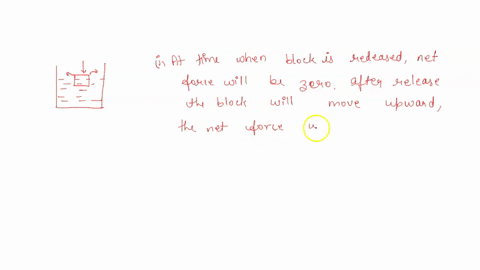 (i) At time when block is redeased, net
force will be zero. after release
the block will move upward,
the net force w